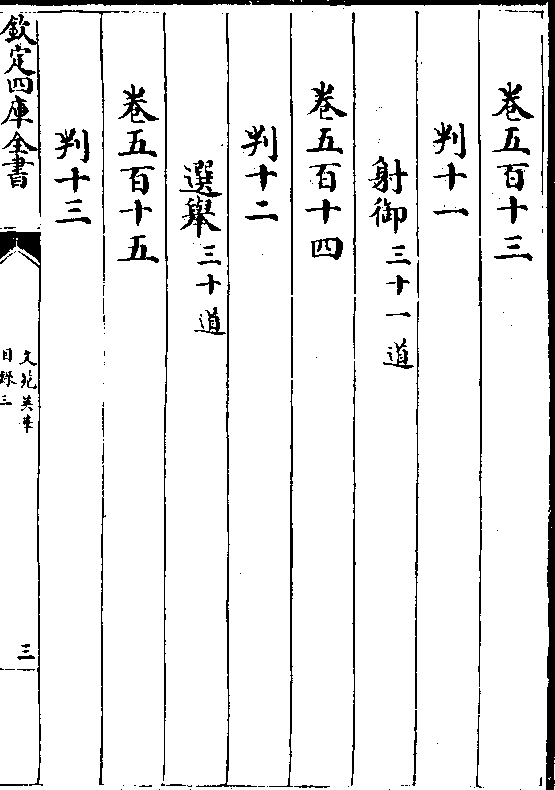 卷五百十三
判十一
射御三十一道
卷五百十四
判十二
選舉三十道
卷五百十五
判十三
欽定四庫全書
文苑英華
目錄三
三